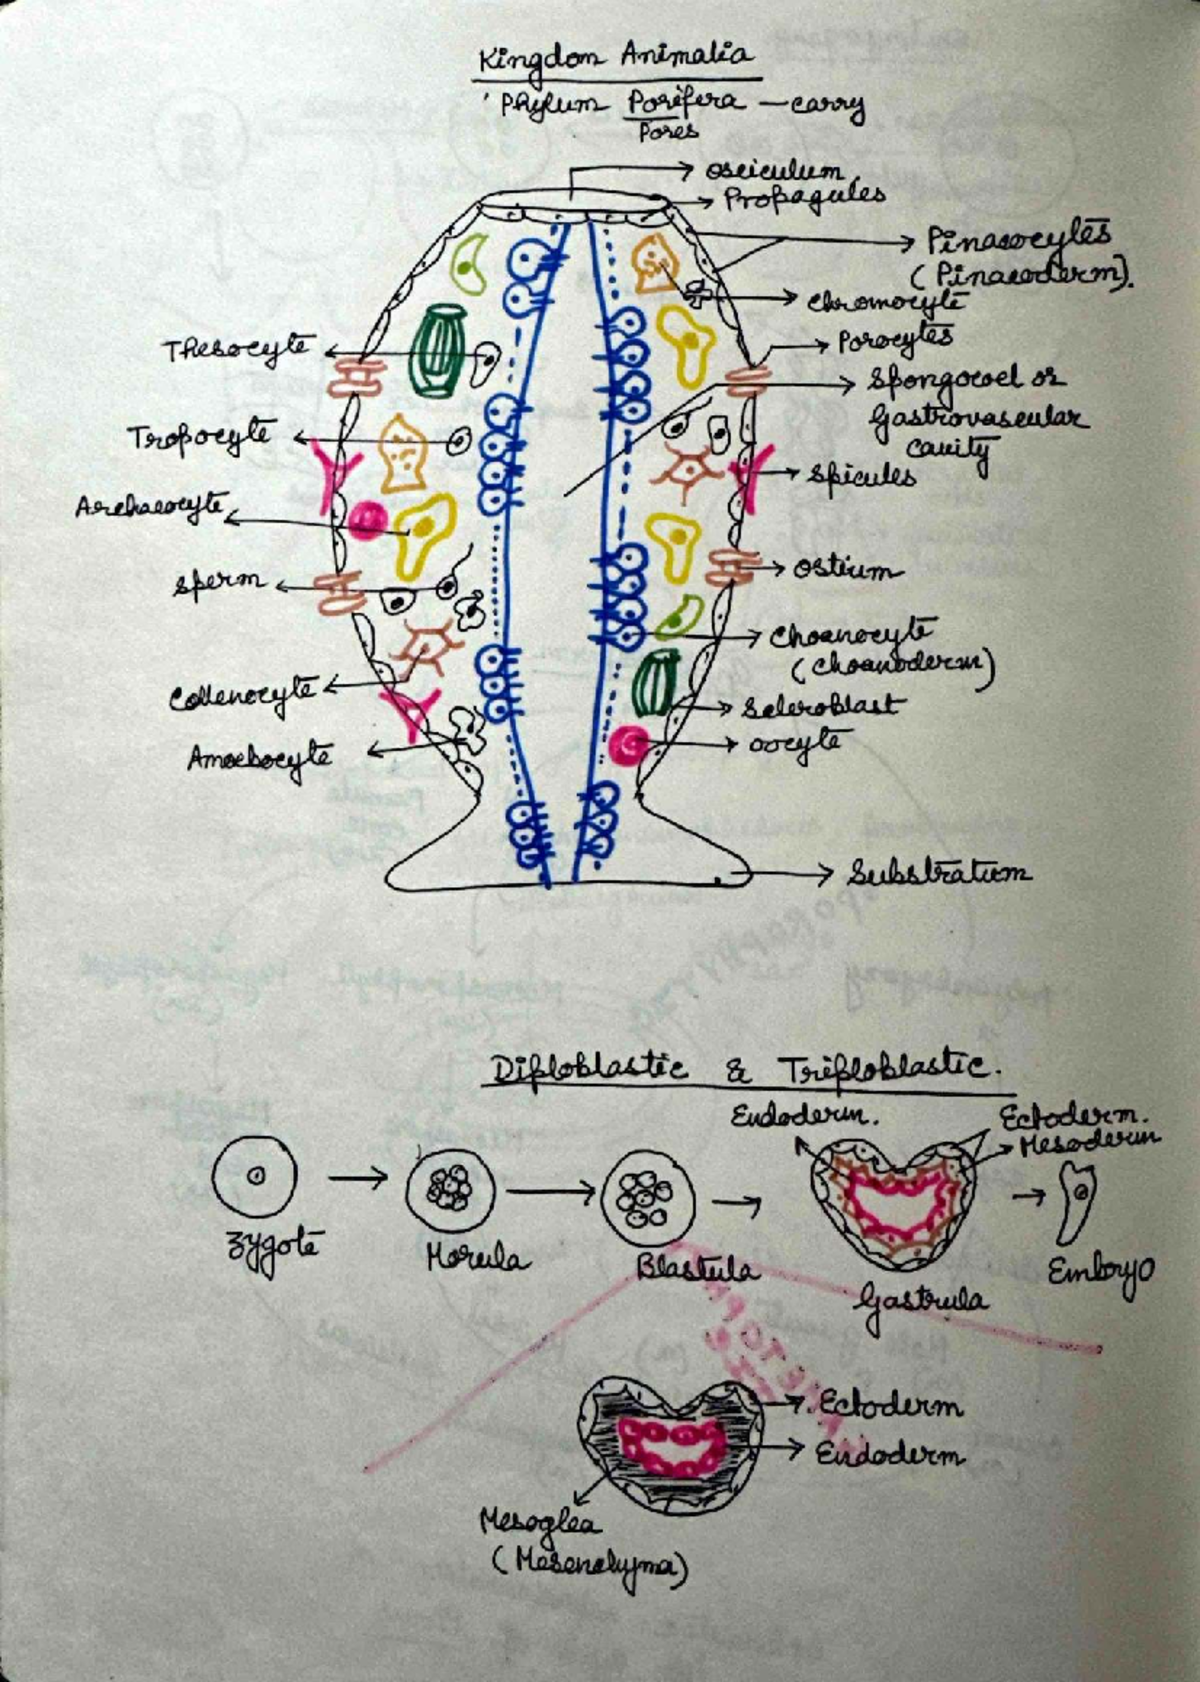 Kingdom Animalia
Phylum Porifera — carry
Pores
Osciculum
Propagules
Pinacocytes
(Pinacoderm).
Chromocyte
Thesocyte
Porocytes
Spongocoel or
Gastrovascular
cavity
Tropocyte
Spicules
Archaeocyte
Sperm
Ostium
Choanocyte
(Choanoderm)
Collenocyte
Scleroblast
Oocyte
Amoebocyte
Substratum
Diploblastic & Triploblastic.
Endoderm.
Ectoderm.
Mesoderm
Zygote
Morula
Blastula
Gastrula
Embryo
Ectoderm
Endoderm
Mesoglea
(Mesenchyma)